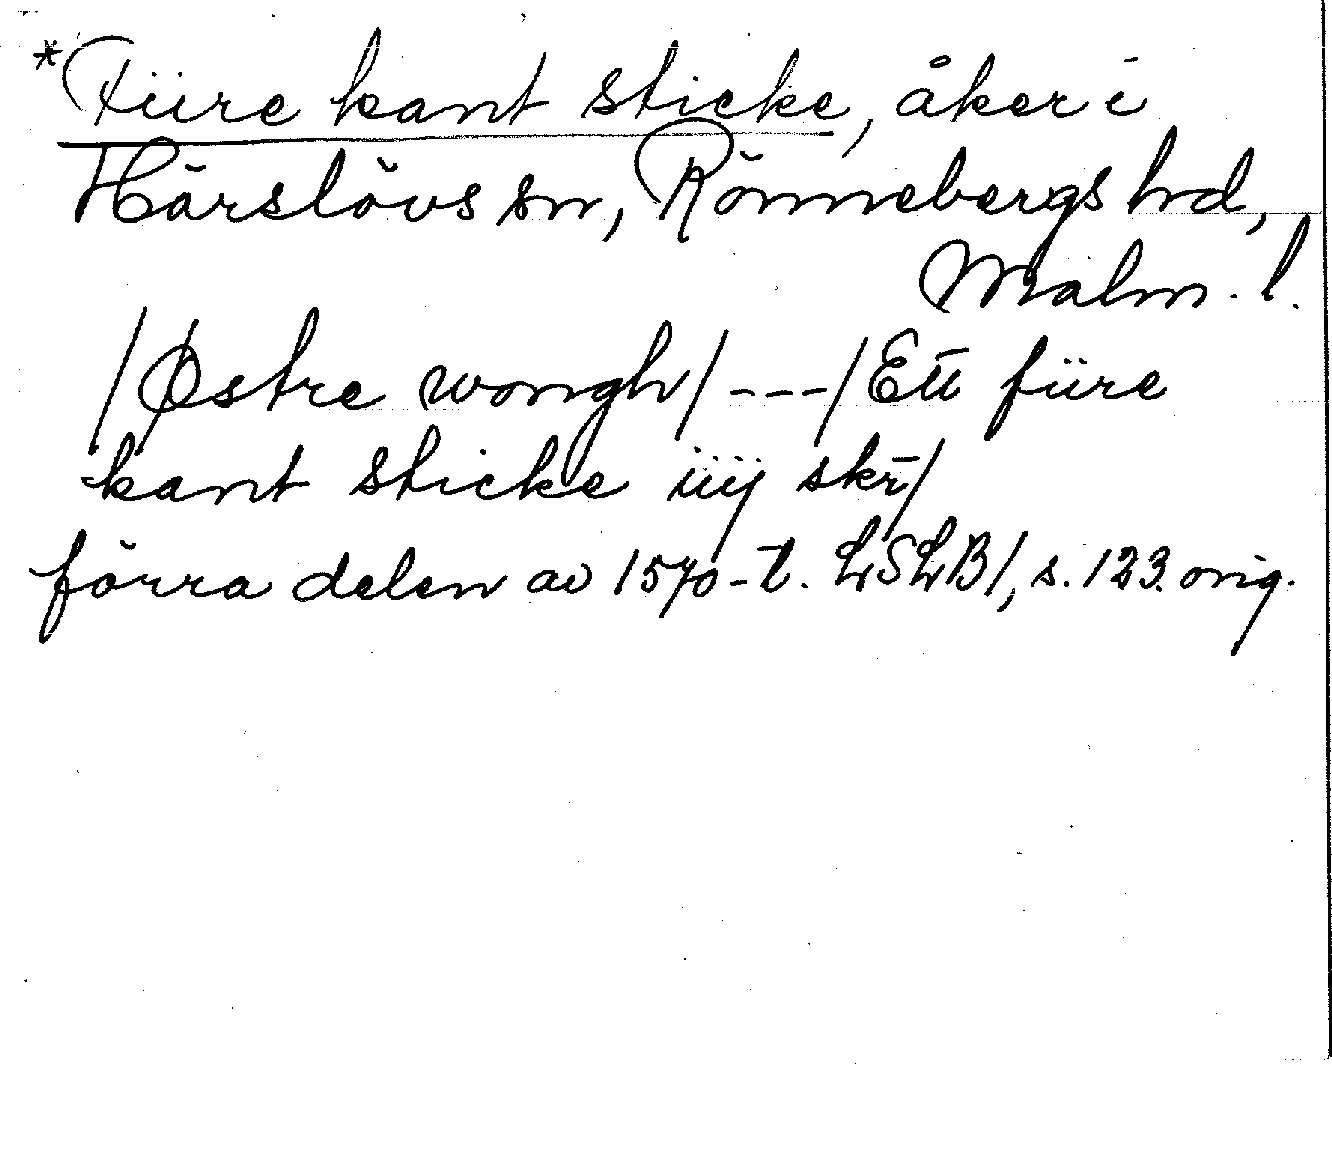 *Füre kant sticke, åker i
Härslövs sn, Rönnebergs hd,
Malm. l.
/Østre wongh/ - - - /Ett füre
kant sticke iiij skr̄/
förra delen av 1570-t. LSLB1, s. 123. orig.